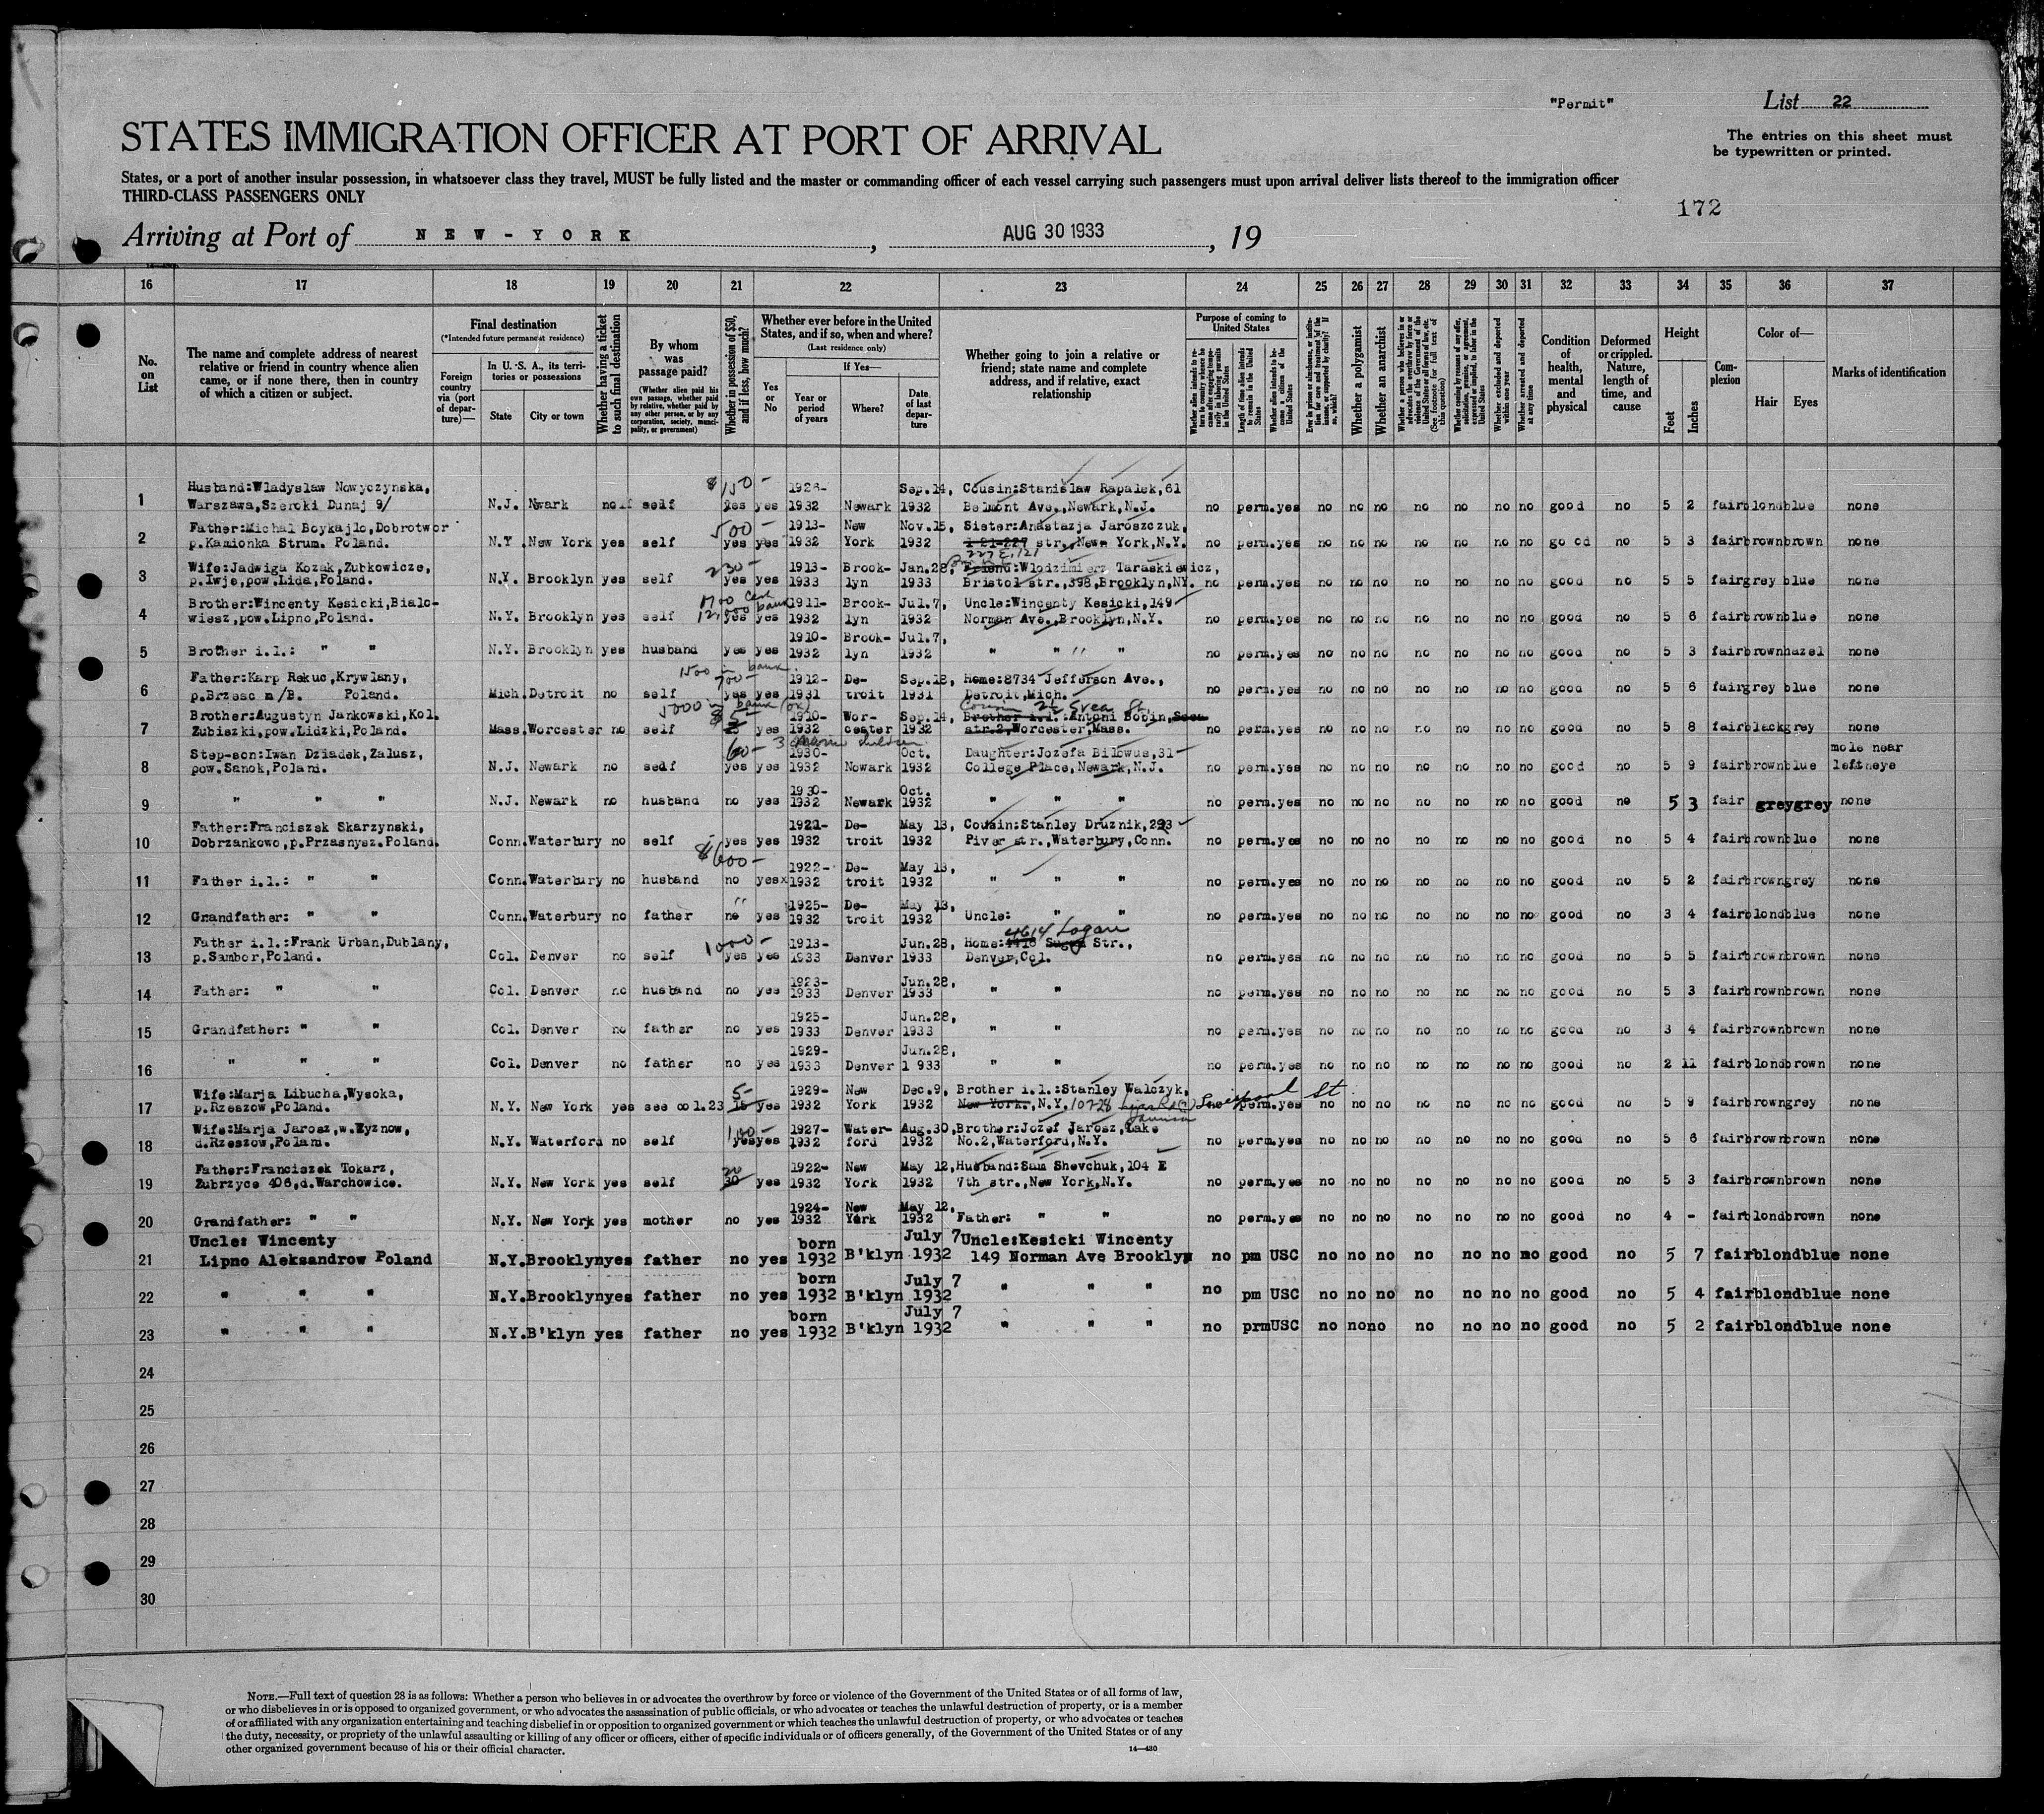 "Permit"
List 22
STATES IMMIGRATION OFFICER AT PORT OF ARRIVAL
The entries on this sheet must
be typewritten or printed.
States, or a port of another insular possession, in whatsoever class they travel, MUST be fully listed and the master or commanding officer of each vessel carrying such passengers must upon arrival deliver lists thereof to the immigration officer
THIRD-CLASS PASSENGERS ONLY
172
Arriving at Port of NEW-YORK, AUG 30 1933, 19
16 17 18 19 20 21 22 23 24 25 26 27 28 29 30 31 32 33 34 35 36 37
No. on List
The name and complete address of nearest relative or friend in country whence alien came, or if none there, then in country of which a citizen or subject.
Final destination
(*Intended future permanent residence)
Foreign country via (port of departure)—
In U. S. A., its territories or possessions
State
City or town
Whether having a ticket to such final destination
By whom was passage paid?
(Whether alien paid his own passage, whether paid by relative, whether paid by any other person, or by any corporation, society, municipality, or government)
Whether in possession of $50, and if less, how much?
Whether ever before in the United States, and if so, when and where?
(Last residence only)
Yes or No
If Yes—
Year or period of years
Where?
Date of last departure
Whether going to join a relative or friend; state name and complete address, and if relative, exact relationship
Purpose of coming to United States
Length of time alien intends to remain in the United States
Whether alien intends to become a citizen of the United States
Whether a polygamist
Whether an anarchist
Whether excluded and deported within one year
Whether arrested and deported at any time
Condition of health, mental and physical
Deformed or crippled. Nature, length of time, and cause
Height
Feet
Inches
Complexion
Color of—
Hair
Eyes
Marks of identification
Husband:Wladyslaw Nowyczynska, $150- 1926- Sep.14, Cousin:Stanislaw Rapalek,61
1 Warszawa,Szeroki Dunaj 9/ N.J. Nwark no self yes yes 1932 Newark 1932 Belmont Ave.,Newark,N.J. no perm.yes no no no no no no no good no 5 2 fair blond blue none
Father:Michal Boykajlo,Dobrotwor 500- 1913- New Nov.15, Sister:Anastazja Jaroszczuk,
2 p.Kamionka Strum. Poland. N.Y. New York yes self yes yes 1932 York 1932 str.,New York,N.Y. no perm.yes no no no no no no no go od no 5 3 fair brown brown none
227 E. 121
Wife:Jadwiga Kozak,Zubkowicze, 230- 1913- Brook- Jan.28, Friend:Wlodzimierz Taraskiewicz,
3 p.Iwje,pow.Lida,Poland. N.Y. Brooklyn yes self yes yes 1933 lyn 1933 Bristol str.,398,Brooklyn,NY. no perm.yes no no no no no no no good no 5 5 fair grey blue none
Brother:Wincenty Kesicki,Bialo- 1700 cash 12,000 bank 1911- Brook- Jul.7, Uncle:Wincenty Kesicki,149
4 wiesz,pow.Lipno,Poland. N.Y. Brooklyn yes self yes yes 1932 lyn 1932 Norman Ave.,Brooklyn,N.Y. no perm.yes no no no no no no no good no 5 6 fair brown blue none
1910- Brook- Jul.7,
5 Brother i.l.: " " N.Y. Brooklyn yes husband yes yes 1932 lyn 1932 " " " no perm.yes no no no no no no no good no 5 3 fair brown hazel none
1500 in bank.
Father:Karp Rekuc,Krywlany, 700- 1912- De- Sep.18, Home:8734 Jefferson Ave.,
6 p.Brzesc n/B. Poland. Mich. Detroit no self yes yes 1931 troit 1931 Detroit,Mich. no perm.yes no no no no no no no good no 5 6 fair grey blue none
5000 in bank (ok) Cousin 2½ Svea St.
Brother:Augustyn Jankowski,Kol. $5- 1910- Wor- Sep.14, Brother i.l.:Antoni Bobin,Svea
7 Zubiszki,pow.Lidzki,Poland. Mass. Worcester no self yes 1932 cester 1932 str.2,Worcester,Mass. no perm.yes no no no no no no no good no 5 8 fair black grey none
Step-son:Iwan Dziadek,Zalusz, 60- 3 children 1930- Oct. Daughter:Jozefa Bilowus,31 mole near
8 pow.Sanok,Poland. N.J. Newark no self yes yes 1932 Newark 1932 College Place,Newark,N.J. no perm.yes no no no no no no no good no 5 9 fair brown blue left neye
1930- Oct.
9 " " " N.J. Newark no husband no yes 1932 Newark 1932 " " " no perm.yes no no no no no no no good no 5 3 fair grey grey none
Father:Franciszek Skarzynski, 1921- De- May 13, Cousin:Stanley Druznik,293
10 Dobrzankowo,p.Przasnysz.Poland. Conn. Waterbury no self yes yes 1932 troit 1932 River str.,Waterbury,Conn. no perm.yes no no no no no no no good no 5 4 fair brown blue none
$600- 1922- De- May 13,
11 Father i.l.: " " Conn. Waterbury no husband no yesx 1932 troit 1932 " " " no perm.yes no no no no no no no good no 5 2 fair brown grey none
" 1925- De- May 13,
12 Grandfather: " " Conn. Waterbury no father no yes 1932 troit 1932 Uncle: " " no perm.yes no no no no no no no good no 3 4 fair blond blue none
4614 Logan
Father i.l.:Frank Urban,Dublany, 1000- 1913- Jun.28, Home: Str.,
13 p.Sambor,Poland. Col. Denver no self yes yes 1933 Denver 1933 Denver,Col. no perm.yes no no no no no no no good no 5 5 fair brown brown none
1923- Jun.28,
14 Father: " " Col. Denver no husband no yes 1933 Denver 1933 " " no perm.yes no no no no no no no good no 5 3 fair brown brown none
1925- Jun.28,
15 Grandfather: " " Col. Denver no father no yes 1933 Denver 1933 " " no perm.yes no no no no no no no good no 3 4 fair brown brown none
1929- Jun.28,
16 " " " Col. Denver no father no yes 1933 Denver 1 933 " " no perm.yes no no no no no no no good no 2 11 fair blond brown none
Wife:Marja Libucha,Wysoka, 5- 1929- New Dec.9, Brother i.l.:Stanley Walczyk, Liverpool St.
17 p.Rzeszow,Poland. N.Y. New York yes see col.23 15 yes 1932 York 1932 New York.,N.Y. perm.yes no no no no no no no good no 5 9 fair brown grey none
Wife:Marja Jarosz,w.Ryznow, 100- 1927- Water- Aug.30, Brother:Jozef Jarosz,Lake
18 d.Rzeszow,Poland. N.Y. Waterford no self yes yes 1932 ford 1932 No.2,Waterford,N.Y. no perm.yes no no no no no no no good no 5 6 fair brown brown none
Father:Franciszek Tokarz, 20 1922- New May 12, Husband:Sam Shevchuk,104 E
19 Zubrzyce 406,d.Warchowice. N.Y. New York yes self 30 yes 1932 York 1932 7th str.,New York,N.Y. no perm.yes no no no no no no no good no 5 3 fair brown brown none
1924- New May 12,
20 Grandfather: " " N.Y. New York yes mother no yes 1932 York 1932 Father: " " no perm.yes no no no no no no no good no 4 - fair blond brown none
Uncle: Wincenty born July 7 Uncle:Kesicki Wincenty
21 Lipno Aleksandrow Poland N.Y. Brooklyn yes father no yes 1932 B'klyn 1932 149 Norman Ave Brooklyn no pm USC no no no no no no no good no 5 7 fair blond blue none
born July 7
22 " " " N.Y. Brooklyn yes father no yes 1932 B'klyn 1932 " " " no pm USC no no no no no no no good no 5 4 fair blond blue none
born July 7
23 " " " N.Y. B'klyn yes father no yes 1932 B'klyn 1932 " " " no prm USC no no no no no no no good no 5 2 fair blond blue none
24
25
26
27
28
29
30
NOTE.—Full text of question 28 is as follows: Whether a person who believes in or advocates the overthrow by force or violence of the Government of the United States or of all forms of law,
or who disbelieves in or is opposed to organized government, or who advocates the assassination of public officials, or who advocates or teaches the unlawful destruction of property, or is a member
of or affiliated with any organization entertaining and teaching disbelief in or opposition to organized government or which teaches the unlawful destruction of property, or who advocates or teaches
the duty, necessity, or propriety of the unlawful assaulting or killing of any officer or officers, either of specific individuals or of officers generally, of the Government of the United States or of any
other organized government because of his or their official character.
14—430